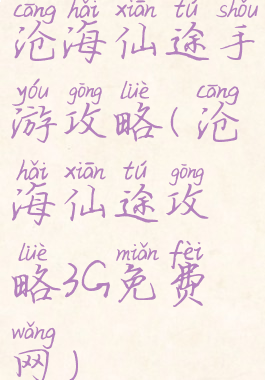 cāng hǎi xiān tú shǒu
沧海仙途手
yóu gōng lüè cāng
游攻略(沧
hǎi xiān tú gōng
海仙途攻
lüè miǎn fèi
略3G免费
wǎng
网)